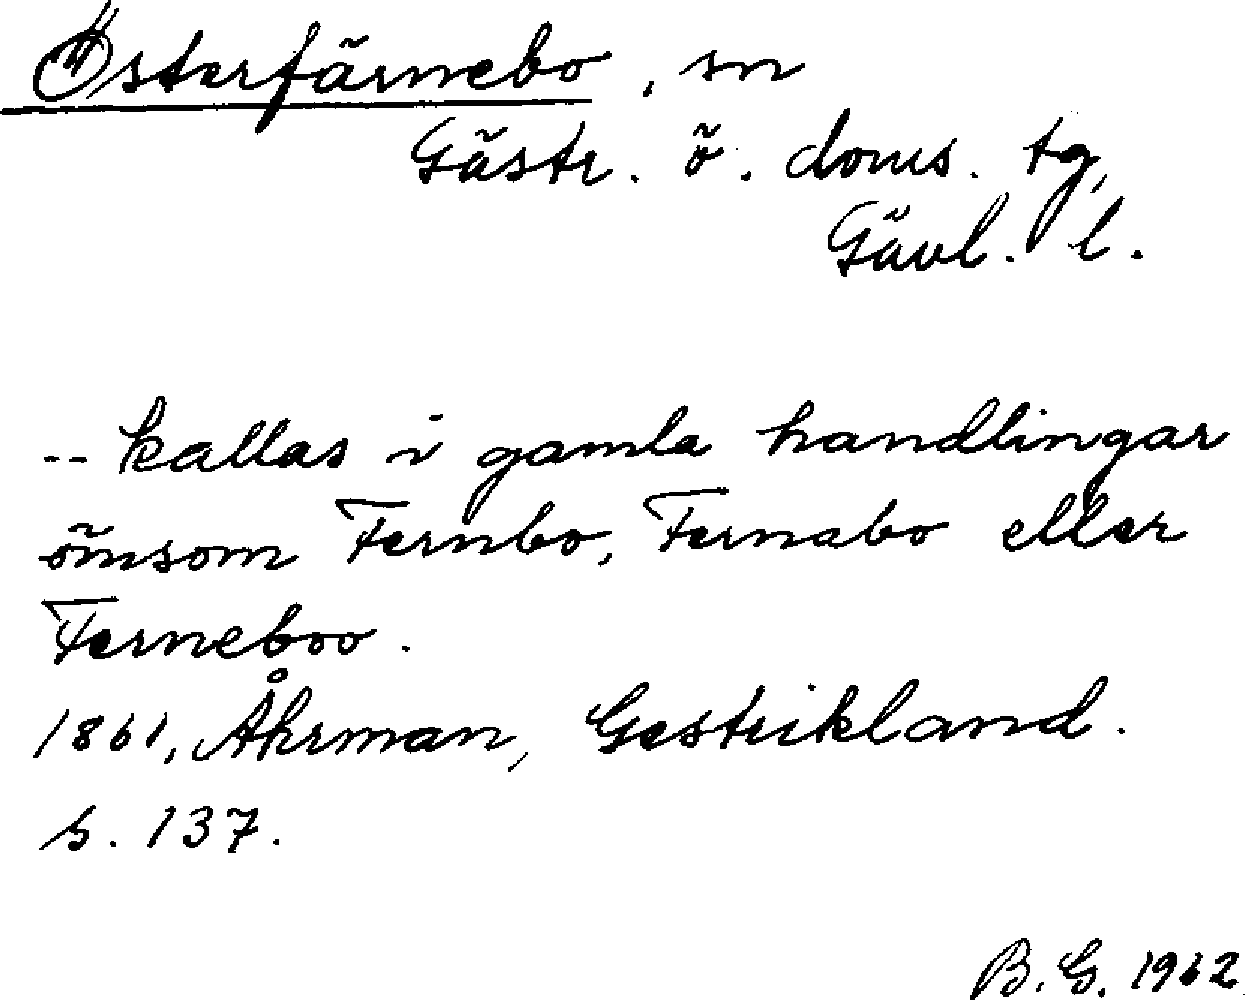 Österfärnebo, sn
Gästr. ö. doms. tg,
Gävl. l.
-- kallas i gamla handlingar
ömsom Fernbo, Fernabo eller
Ferneboo.
1861, Åhrman, Gestrikland.
s. 137.
B. G. 1962